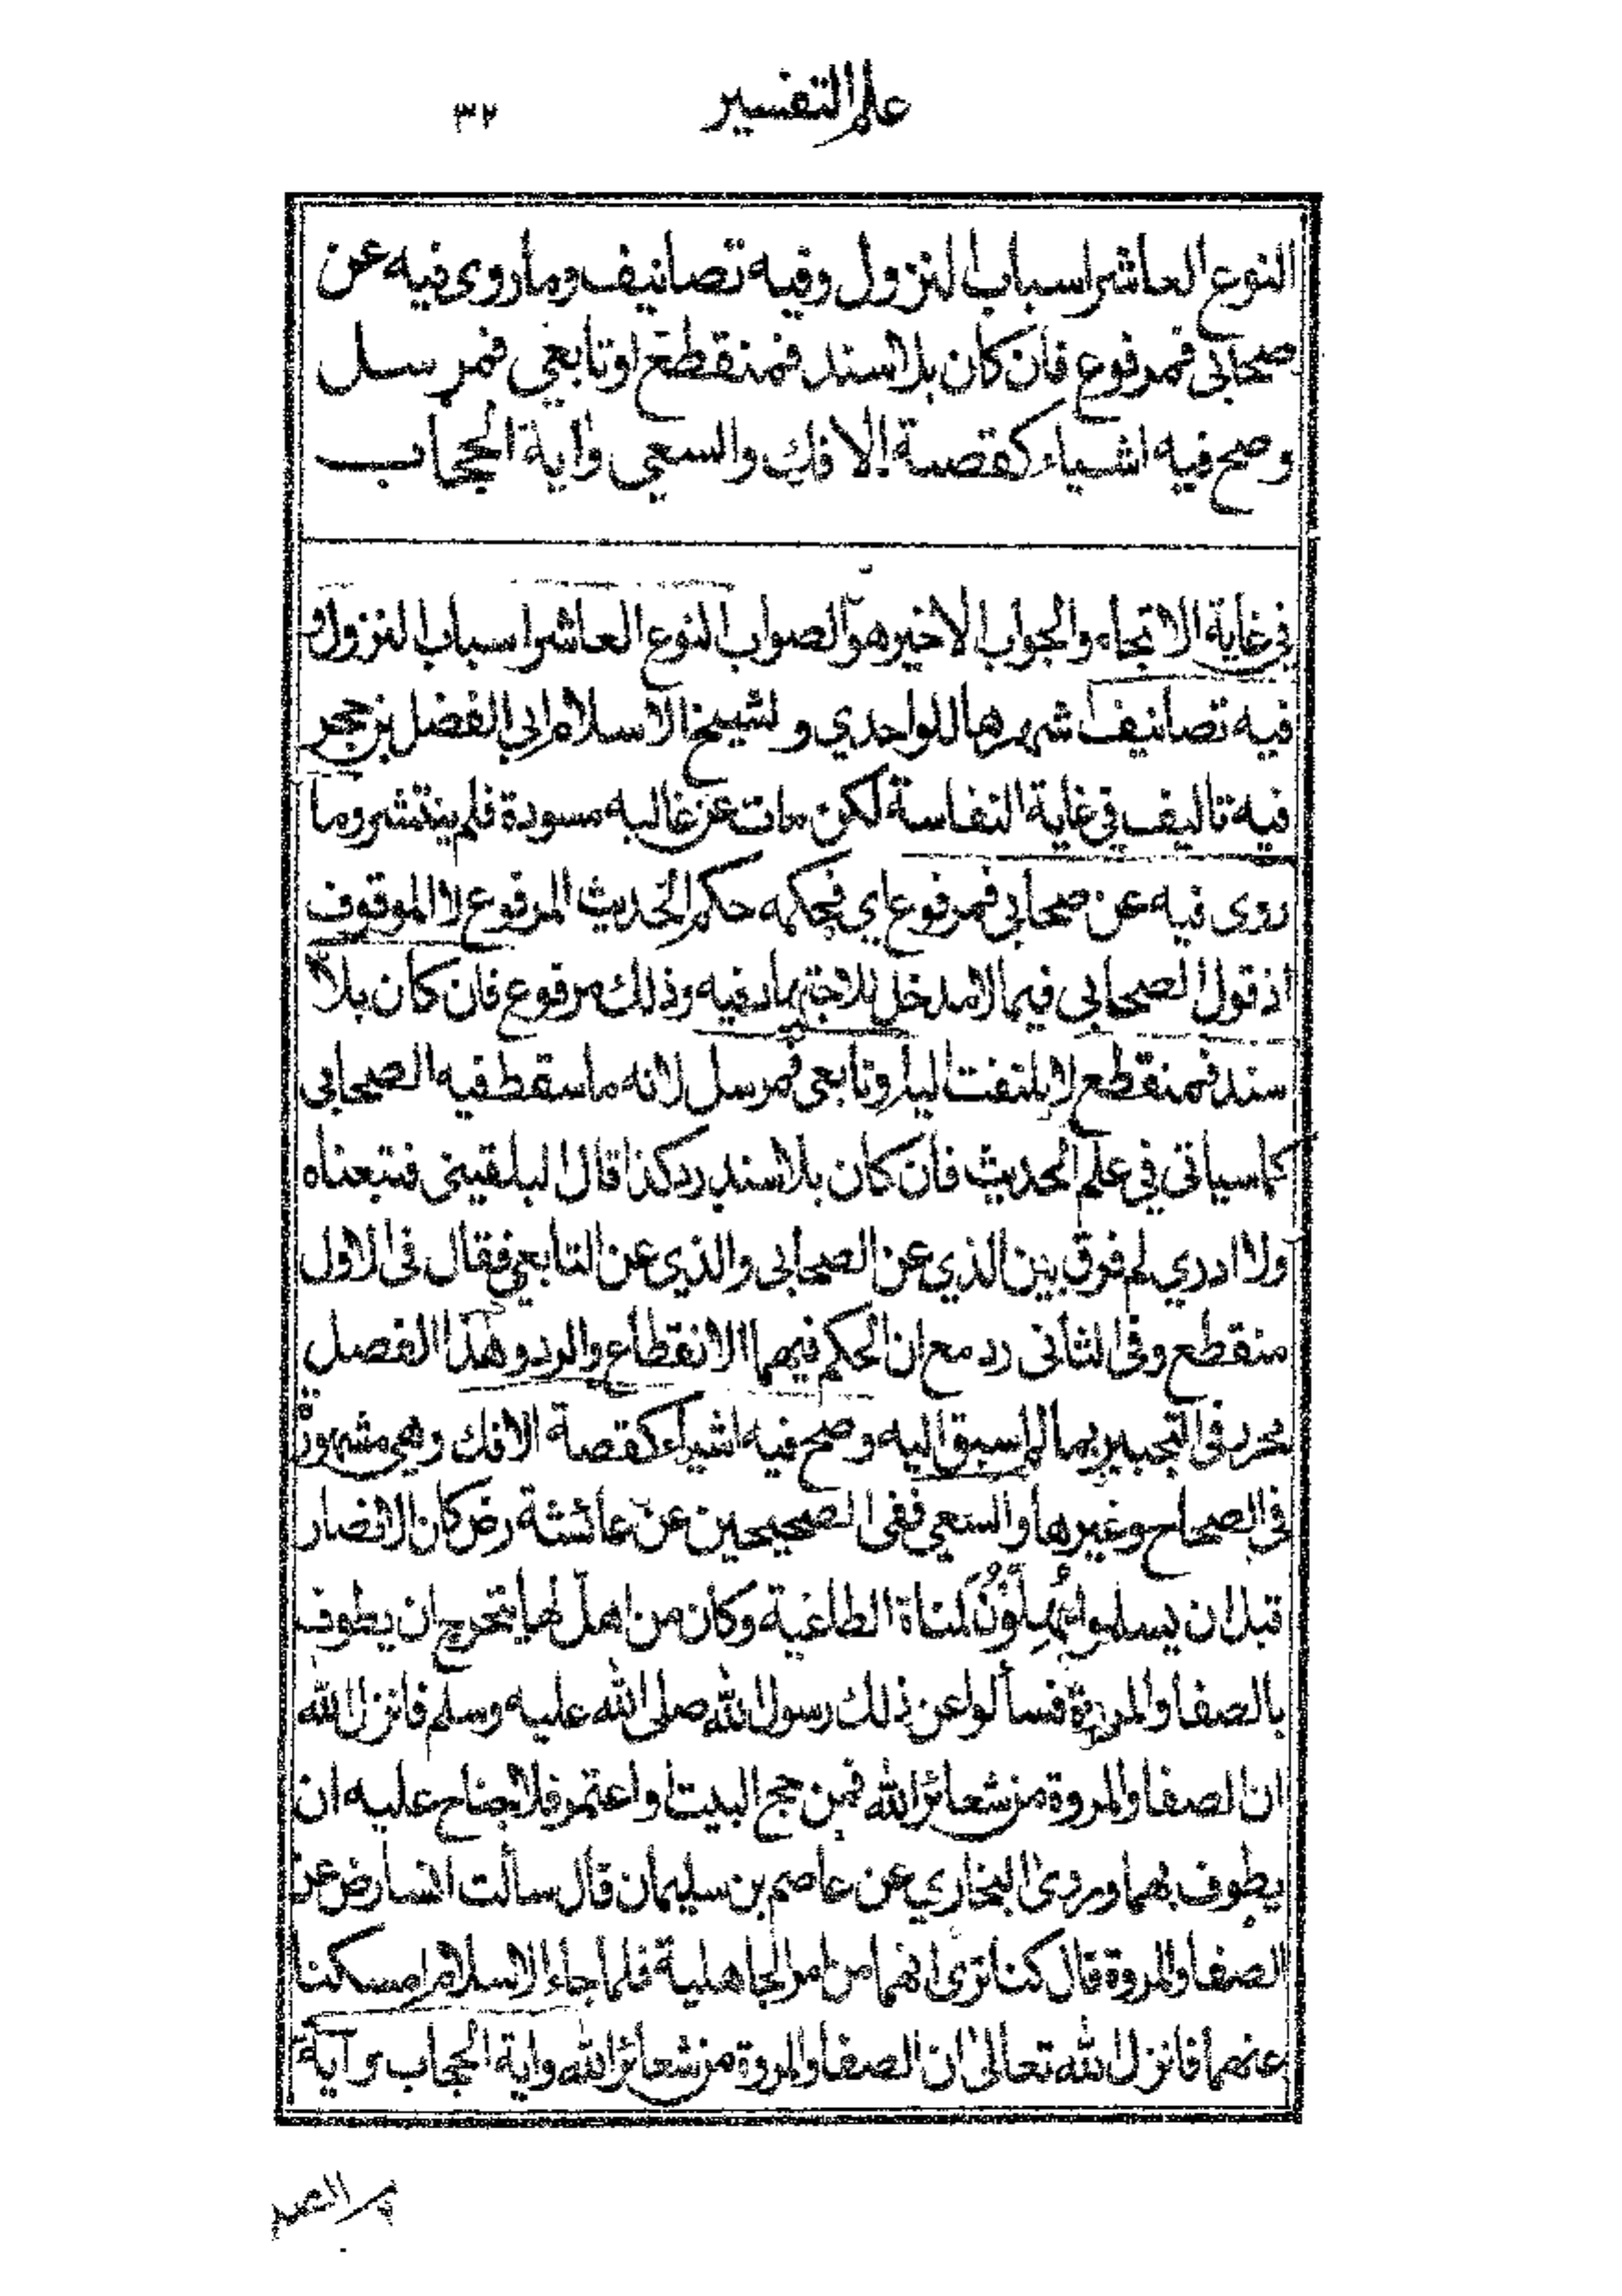 علم التفسير ٣٢
النوع العاشر اسباب النزول وفيه تصانيف وما روى فيه عن
صحابى فمرفوع فان كان بلا سند فمنقطع او تابعي فمرسل
وصح فيه اشياء كقصة الافك والسعي واية الحجاب
في غاية الاتجاه والجواب الاخير هو الصواب النوع العاشر اسباب النزول و
فيه تصانيف اشهرها للواحدي ولشيخ الاسلام ابي الفضل بن حجر
فيه تاليف في غاية النفاسة لكن مات عن غالبه مسودة فلم ينتشر وما
روى فيه عن صحابي فمرفوع اي فحكمه حكم الحديث المرفوع لا الموقوف
اذ قول الصحابي فيما لا مدخل للاجتهاد فيه وذلك مرفوع فان كان بلا
سند فمنقطع لا يلتفت اليه او تابعي فمرسل لانه ما سقط فيه الصحابى
كما سياتى في علم الحديث فان كان بلا سند رد كذا قال البلقينى فتبعناه
ولا ادري لم فرق بين الذي عن الصحابى والذي عن التابعي فقال فى الاول
منقطع وفى الثانى رد مع ان الحكم فيهما الانقطاع والرد وهذا الفصل
محرر فى التحبير بما لم اسبق اليه وصح فيه اشياء كقصة الافك وهي مشهورة
فى الصحاح وغيرها والسعي ففى الصحيحين عن عائشة رض كان الانصار
قبل ان يسلموا يُهِلُّوْنَ لمناة الطاغية وكان من اهل لها يتحرج ان يطوف
بالصفا والمروة فسألوا عن ذلك رسول الله صلى الله عليه وسلم فانزل الله
ان الصفا والمروة من شعائر الله فمن حج البيت او اعتمر فلا جناح عليه ان
يطوف بهما وروى البخاري عن عاصم بن سليمان قال سألت انسا رض عن
الصفا والمروة قال كنا نرى انهما من امر الجاهلية فلما جاء الاسلام امسكنا
عنهما فانزل الله تعالى ان الصفا والمروة من شعائر الله واية الحجاب وآية